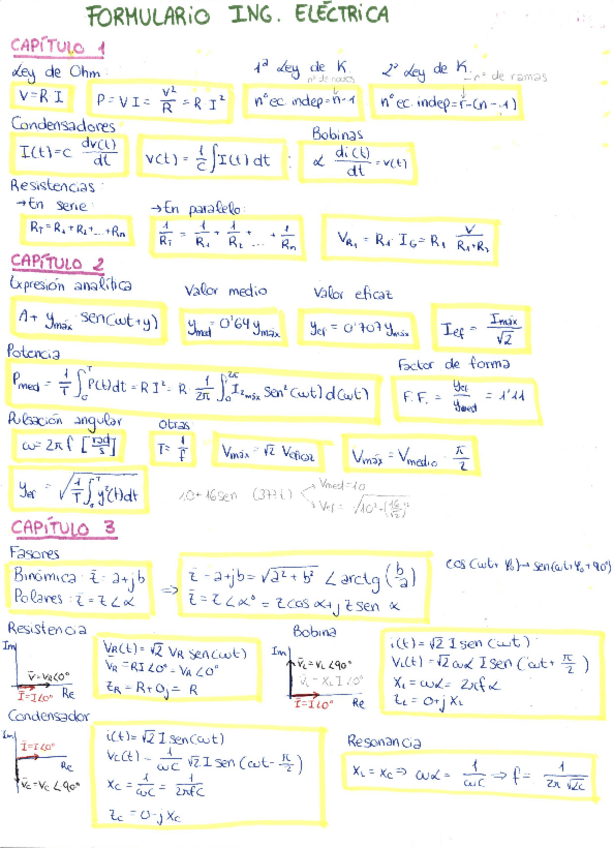 FORMULARIO ING. ELÉCTRICA
CAPÍTULO 1
Ley de Ohm:
V=R I
P = V I = V²/R = R I²
1ª Ley de K
nº de nodos
nº ec. indep = n-1
2ª Ley de K
nº de ramas
nº ec. indep = r-(n-1)
Condensadores
I(t)=C dv(t)/dt
V(t) = 1/C ∫I(t) dt
Bobinas
L di(t)/dt = v(t)
Resistencias:
→En serie:
RT = R1+R2+...+Rn
→En paralelo:
1/RT = 1/R1 + 1/R2 + ... + 1/Rn
VR1 = R1 · IG = R1 V/(R1+R2)
CAPÍTULO 2
Expresión analítica
A + ymáx sen(ωt+y)
Valor medio
ymed = 0'64 ymáx
Valor eficaz
yef = 0'707 ymáx
Ief = Imáx/√2
Potencia
Pmed = 1/T ∫₀ᵀ P(t)dt = R I² = R · 1/2π ∫₀²π I²máx sen²(ωt) d(ωt)
Factor de forma
F.F. = yef/ymed = 1'11
Pulsación angular
ω = 2π f [rad/s]
Otras
T = 1/f
Vmáx = √2 Veficaz
Vmáx = Vmedio · π/2
yef = √(1/T ∫₀ᵀ y²(t)dt)
10+16sen (377t)
Vmed=10
Vef = √(10²+(16/√2)²)
CAPÍTULO 3
Fasores
Binómica: z̄ = a+jb
Polares: z̄ = z∠α
⇒
z̄ = a+jb = √(a²+b²) ∠arctg(b/a)
z̄ = z∠α° = z cos α + j z sen α
cos(ωt+φ₀)→sen(ωt+φ₀+90°)
Resistencia
Im
V̄=VR∠0°
Ī=I∠0°
Re
VR(t) = √2 VR sen(ωt)
V̄R = RI∠0° = VR∠0°
ZR = R+0j = R
Bobina
Im
V̄L=VL∠90°
V̄L=XL I∠0°
Ī=I∠0°
Re
i(t) = √2 I sen(ωt)
VL(t) = √2 ωL I sen(ωt + π/2)
XL = ωL = 2πfL
ZL = 0+j XL
Condensador
Im
Ī=I∠0°
Re
V̄C=VC∠90°
i(t) = √2 I sen(ωt)
VC(t) = 1/ωC √2 I sen(ωt - π/2)
XC = 1/ωC = 1/2πfC
ZC = 0-j XC
Resonancia
XL = XC ⇒ ωL = 1/ωC ⇒ f = 1/(2π √LC)